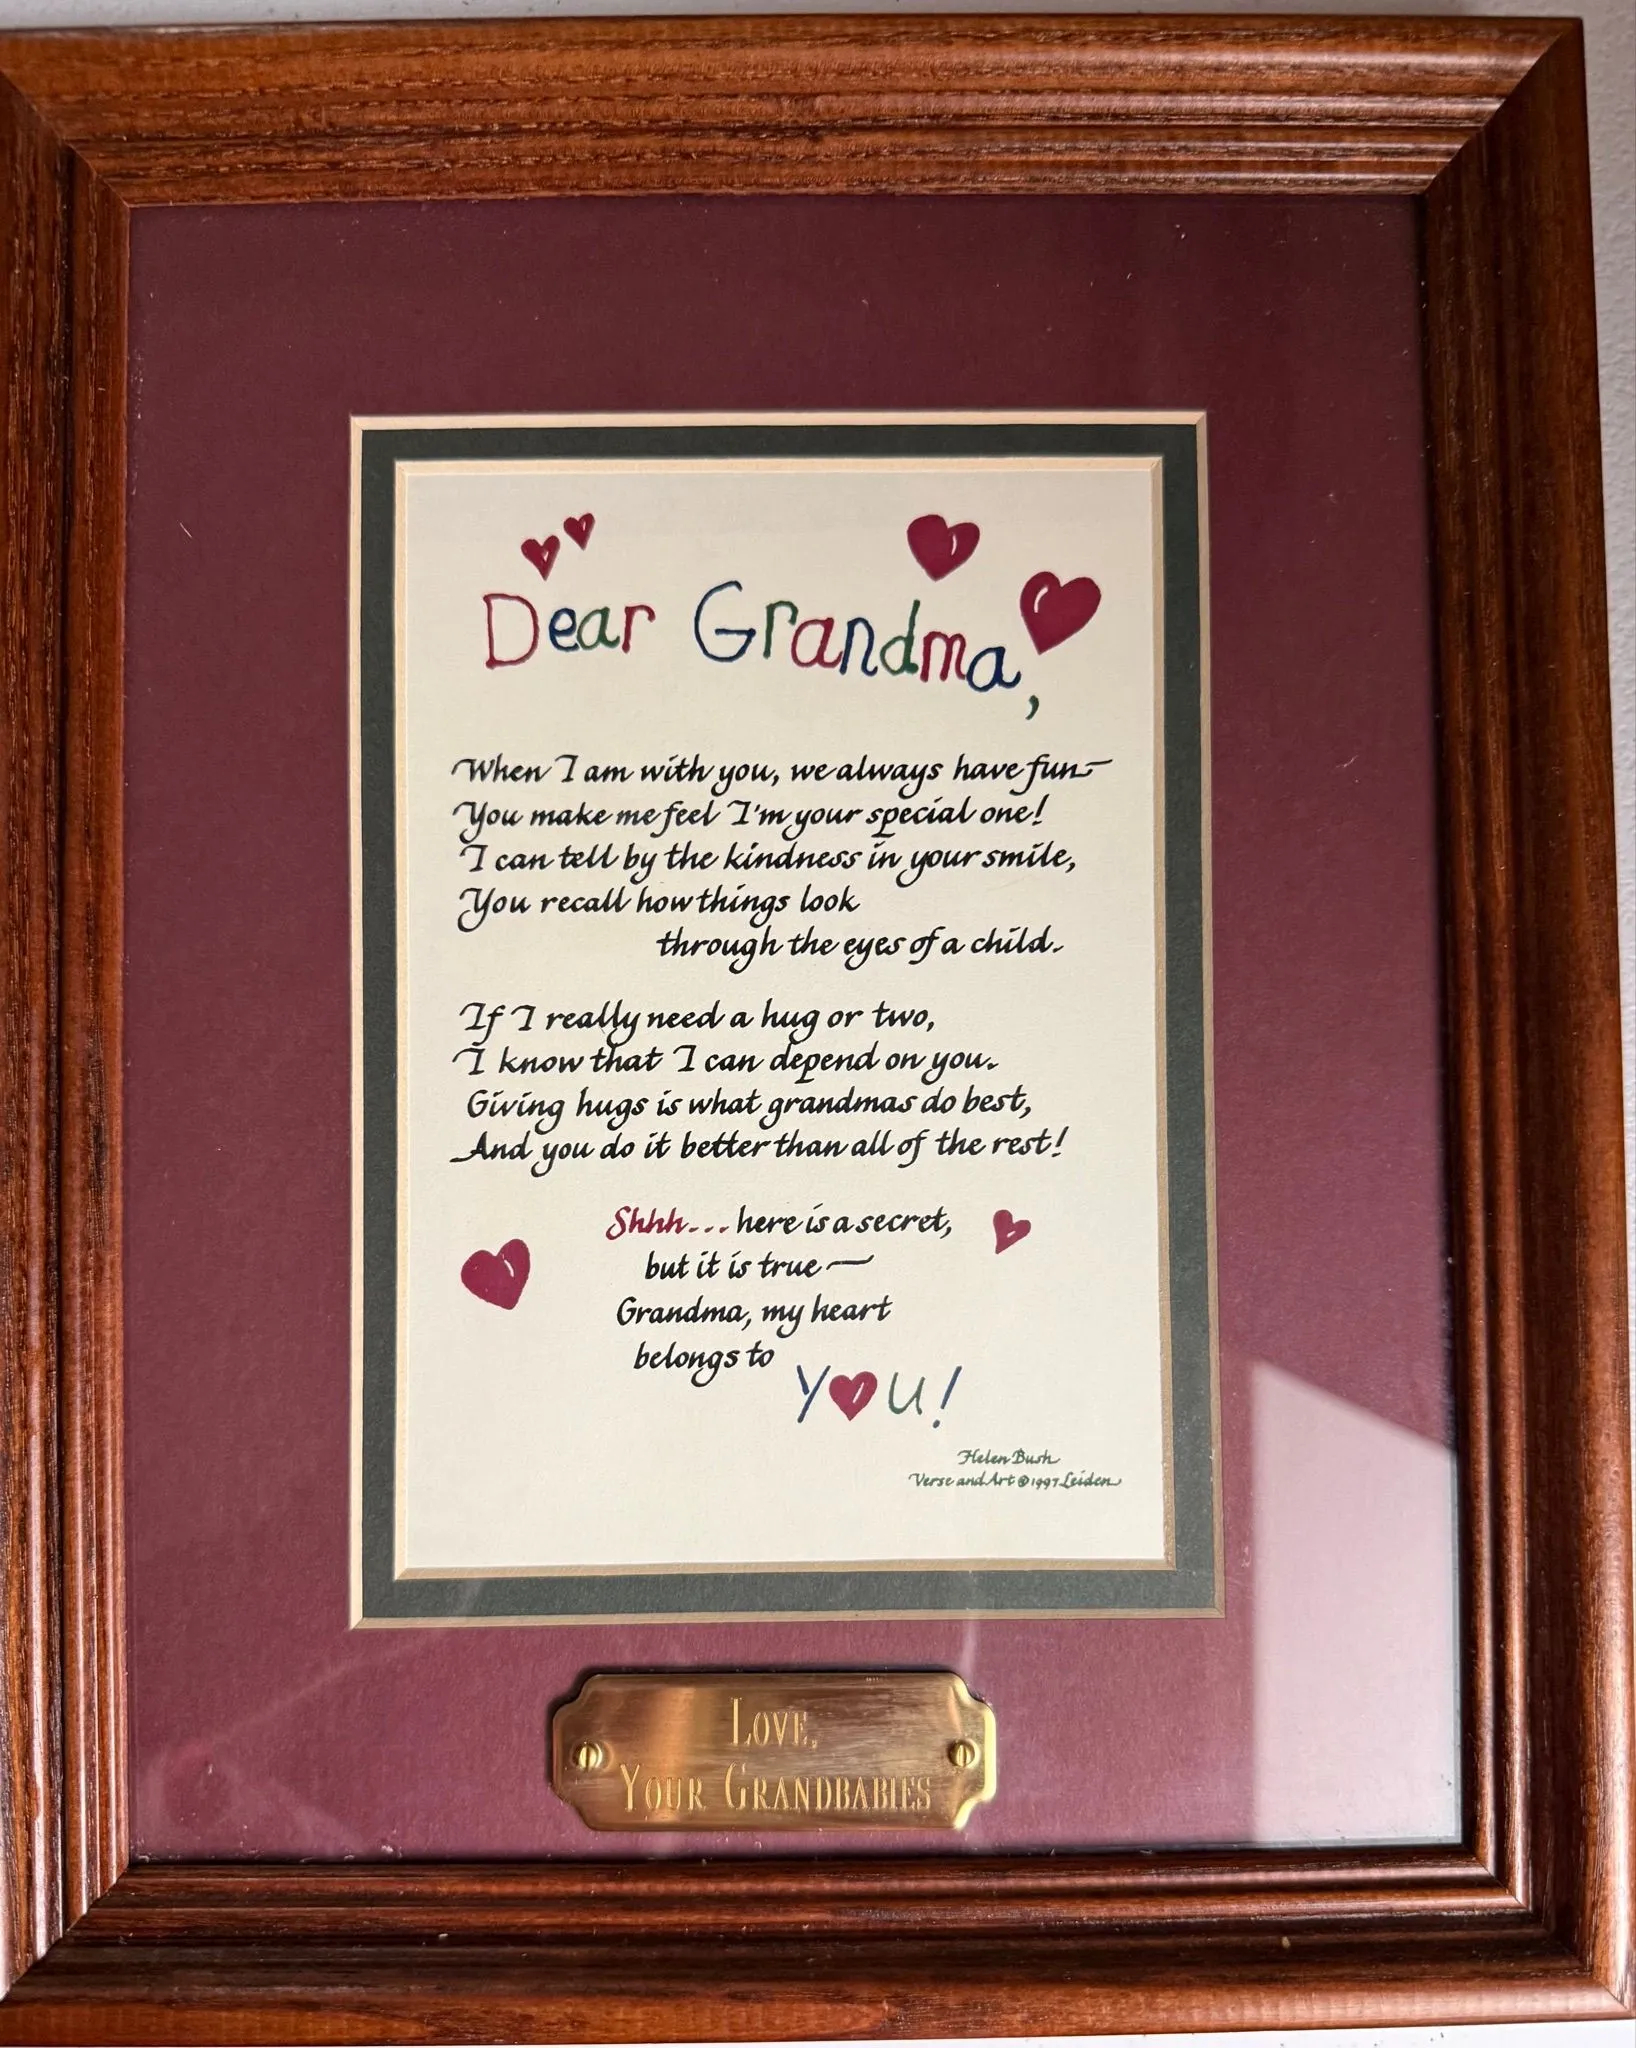 Dear Grandma,
When I am with you, we always have fun—
You make me feel I'm your special one!
I can tell by the kindness in your smile,
You recall how things look
through the eyes of a child.
If I really need a hug or two,
I know that I can depend on you.
Giving hugs is what grandmas do best,
And you do it better than all of the rest!
Shhh... here is a secret,
but it is true—
Grandma, my heart
belongs to
Y♥U!
Helen Bush
Verse and Art © 1997 Leiden
LOVE,
YOUR GRANDBABIES